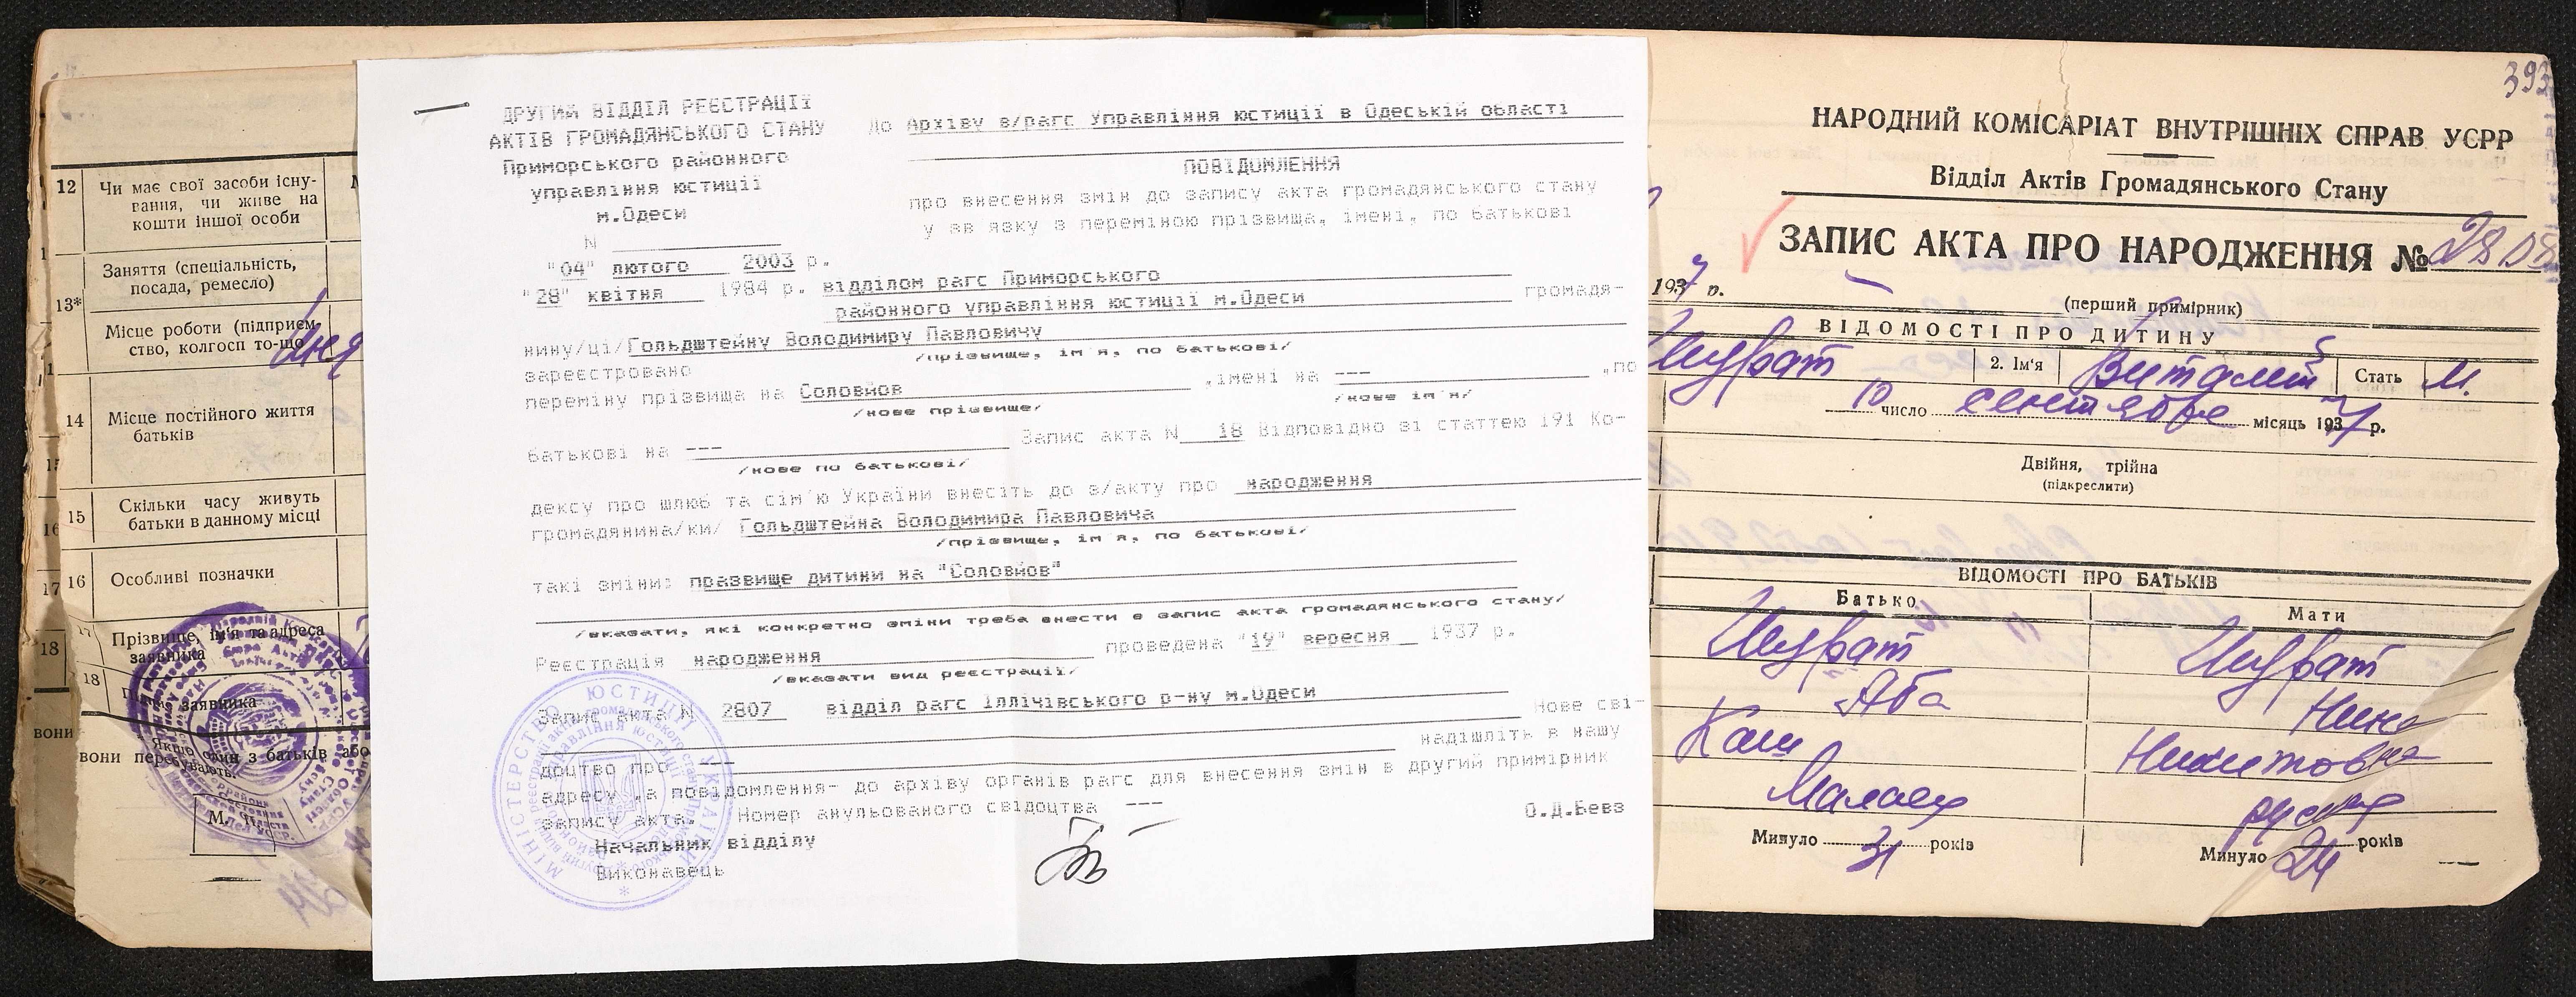 12 Чи має свої засоби існу-
вання, чи живе на
кошти іншої особи
13* Заняття (спеціальність,
посада, ремесло)
Місце роботи (підприєм-
ство, колгосп то-що
14 Місце постійного життя
батьків
15 Скільки часу живуть
батьки в данному місці
16 Особливі позначки
17
18 Прізвище, ім'я та адреса
заявника
18
заявника
* Якщо один з батьків або
вони перебувають.
М. П.
ДРУГИЙ ВІДДІЛ РЕЄСТРАЦІЇ
АКТІВ ГРОМАДЯНСЬКОГО СТАНУ
Приморського районного
управління юстиції
м.Одеси
N
"04" лютого 2003 р.
До Архіву в/рагс Управління юстиції в Одеській області
ПОВІДОМЛЕННЯ
про внесення змін до запису акта громадянського стану
у зв язку з переміною прізвища, імені, по батькові
"28" квітня 1984 р. відділом рагс Приморського
районного управління юстиції м.Одеси громадя-
нину/ці/ Гольдштейну Володимиру Павловичу
/прізвище, ім я, по батькові/
зареєстровано
переміну прізвища на Соловйов ,імені на --- ,по
/нове прізвище/ /нове ім'я/
батькові на --- Запис акта N 18 Відповідно зі статтею 191 Ко-
/нове по батькові/
дексу про шлюб та сім'ю України внесіть до з/акту про народження
громадянина/ки/ Гольдштейна Володимира Павловича
/прізвище, ім я, по батькові/
такі зміни: празвище дитини на "Соловйов"
/вказати, які конкретно зміни треба внести в запис акта громадянського стану/
Реєстрація народження проведена "19" вересня 1937 р.
/вказати вид реєстрації/
Запис акта N 2807 відділ рагс Іллічівського р-ну м.Одеси
Нове сві-
доцтво про --- надішліть в нашу
адресу ,а повідомлення- до архіву органів рагс для внесення змін в другий примірник
запису акта. Номер анульованого свідоцтва ---
Начальник відділу О.Д.Бевз
Виконавець
МІНІСТЕРСТВО ЮСТИЦІЇ УКРАЇНИ
393
НАРОДНИЙ КОМІСАРІАТ ВНУТРІШНІХ СПРАВ УСРР
Відділ Актів Громадянського Стану
ЗАПИС АКТА ПРО НАРОДЖЕННЯ №
1937 р.
(перший примірник)
ВІДОМОСТІ ПРО ДИТИНУ
2. Ім'я Виталий Стать М.
10 число сентября місяць 1937 р.
Двійня, трійна
(підкреслити)
ВІДОМОСТІ ПРО БАТЬКІВ
Батько Мати
Аба Нина
Никитовна
русская
Минуло 31 років Минуло 24 років